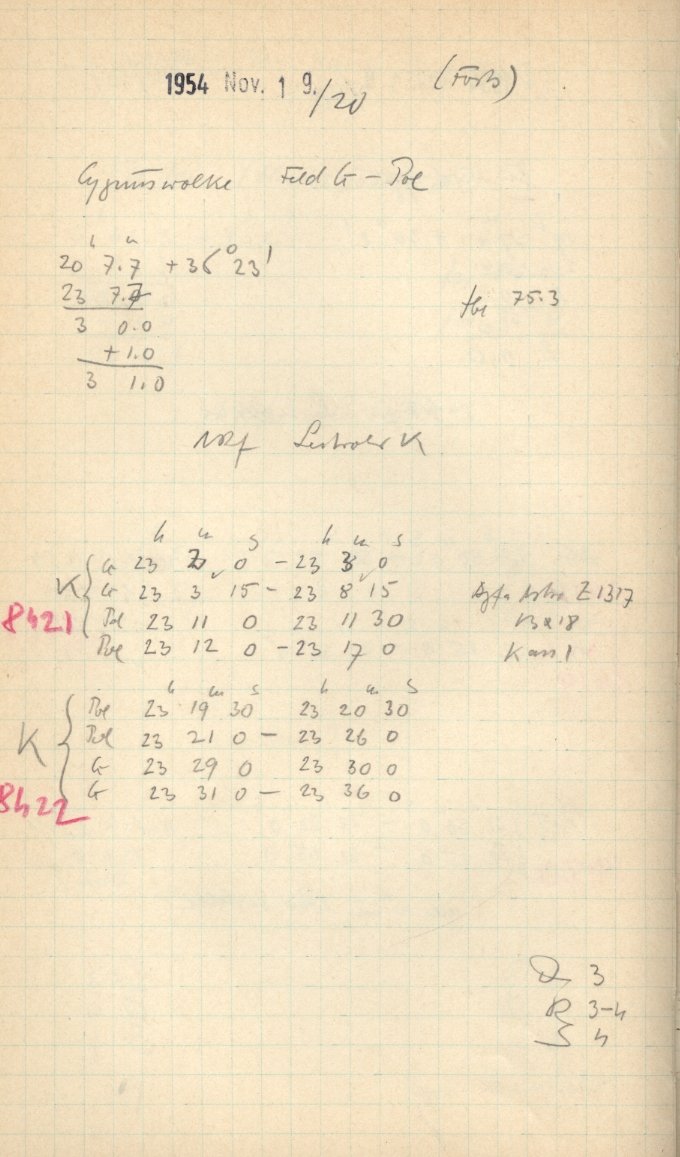 1954 Nov. 19./20 (Forts)
Cygnuswolke Feld G – Pol
h m
20 7.7 +36° 23'
23 7.7
tbr 75.3
3 0.0
+1.0
3 1.0
K
h m s h m s
G 23 2 0 – 23 3 0
K G 23 3 15 – 23 8 15 Agfa Astro Z 1317
8421 Pol 23 11 0 23 11 30 13 x 18
Pol 23 12 0 – 23 17 0 Kass 1
h m s h m s
Pol 23 19 30 23 20 30
K Pol 23 21 0 – 23 26 0
G 23 29 0 23 30 0
8422 G 23 31 0 – 23 36 0
D 3
R 3–4
S 4